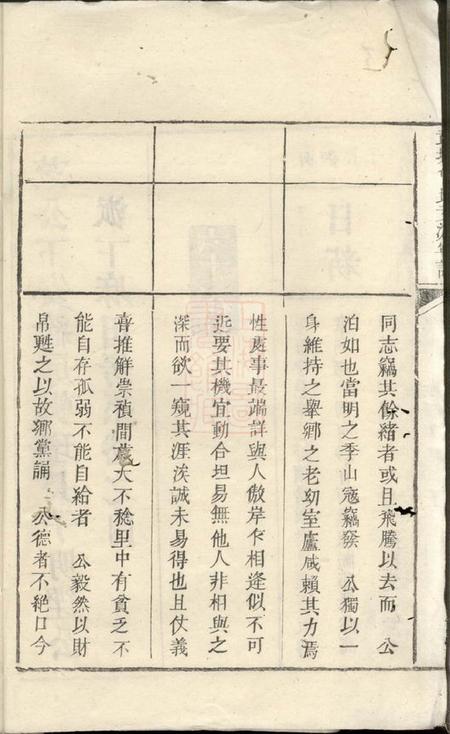 同志竊其餘緒者或且飛騰以去而　公
泊如也當明之季山寇竊發　公獨以一
身維持之舉鄉之老幼室廬咸賴其力焉
性處事最端詳與人傲岸乍相逢似不可
近要其機宜動合坦易無他人非相與之
深而欲一窺其涯涘誠未易得也且仗義
喜推解崇積間歲大不稔里中有貧乏不
能自存孤弱不能自給者　公毅然以財
帛甦之以故鄉黨誦　公德者不絶口今